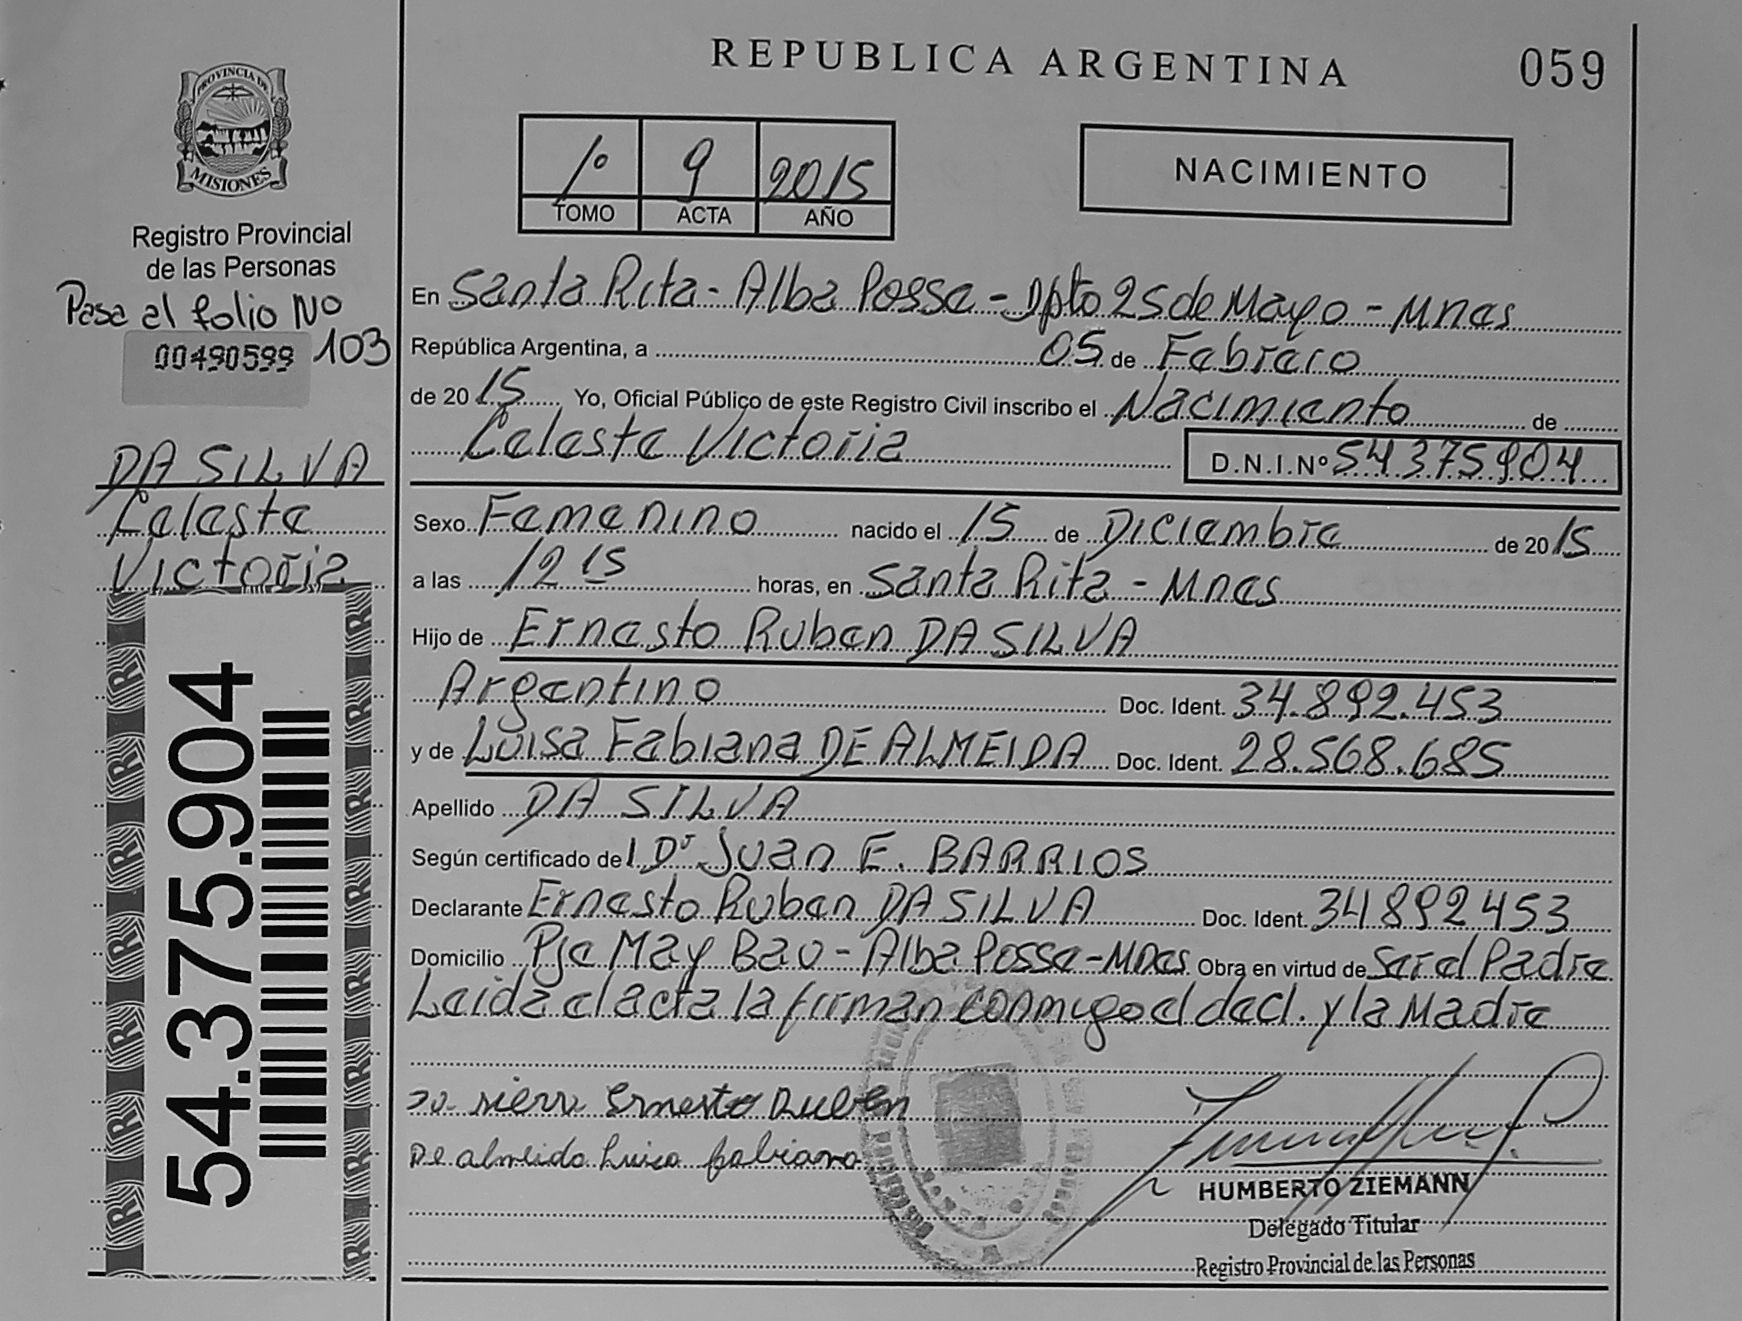 REPUBLICA ARGENTINA
059
PROVINCIA DE
MISIONES
Registro Provincial
de las Personas
Pasa al folio No
103
00490599
DA SILVA
Celeste
Victoria
54.375.904
1º 9 2015
TOMO ACTA AÑO
NACIMIENTO
En Santa Rita - Alba Posse - Dpto 25 de Mayo - Mnes
República Argentina, a 05 de Febrero
de 2015 Yo, Oficial Público de este Registro Civil inscribo el Nacimiento de
Celeste Victoria D.N.I.Nº 54375904
Sexo Femenino nacido el 15 de Diciembre de 2015
a las 12 15 horas, en Santa Rita - Mnes
Hijo de Ernesto Ruben DA SILVA
Argentino Doc. Ident. 34.892.453
y de Luisa Fabiana DE ALMEIDA Doc. Ident. 28.568.685
Apellido DA SILVA
Según certificado del Dr Juan E. BARRIOS
Declarante Ernesto Ruben DA SILVA Doc. Ident. 34892453
Domicilio Pje May Bao - Alba Posse - Mnes Obra en virtud de Ser el Padre
Leida el acta la firman conmigo el decl. y la Madre
Ernesto Ruben
De almeida Luisa fabiana
HUMBERTO ZIEMANN
Delegado Titular
Registro Provincial de las Personas